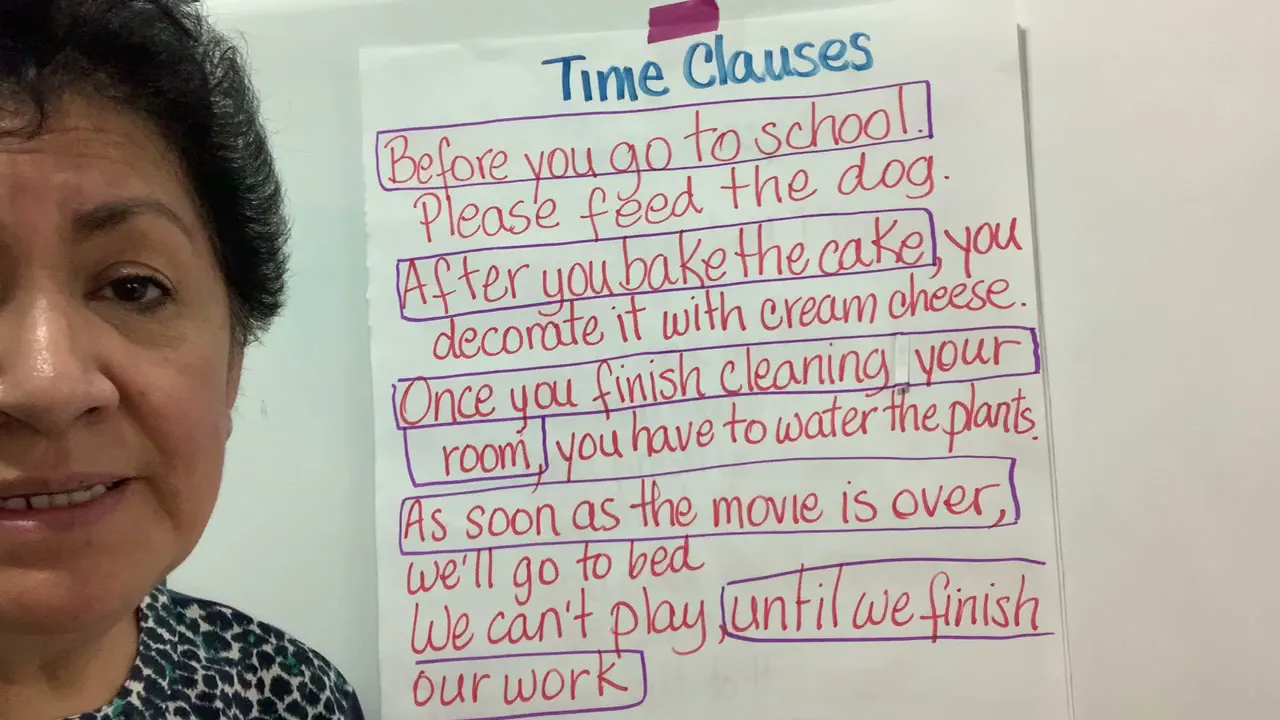 Time Clauses
Before you go to school.
Please feed the dog.
After you bake the cake, you
decorate it with cream cheese.
Once you finish cleaning your
room, you have to water the plants.
As soon as the movie is over,
we'll go to bed
We can't play, until we finish
our work